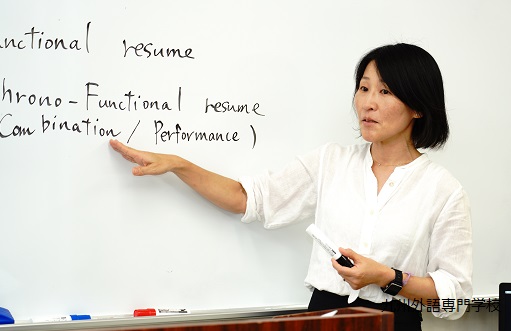 nctional resume
hrono-Functional resume
(Combination / Performance)
外語専門学校